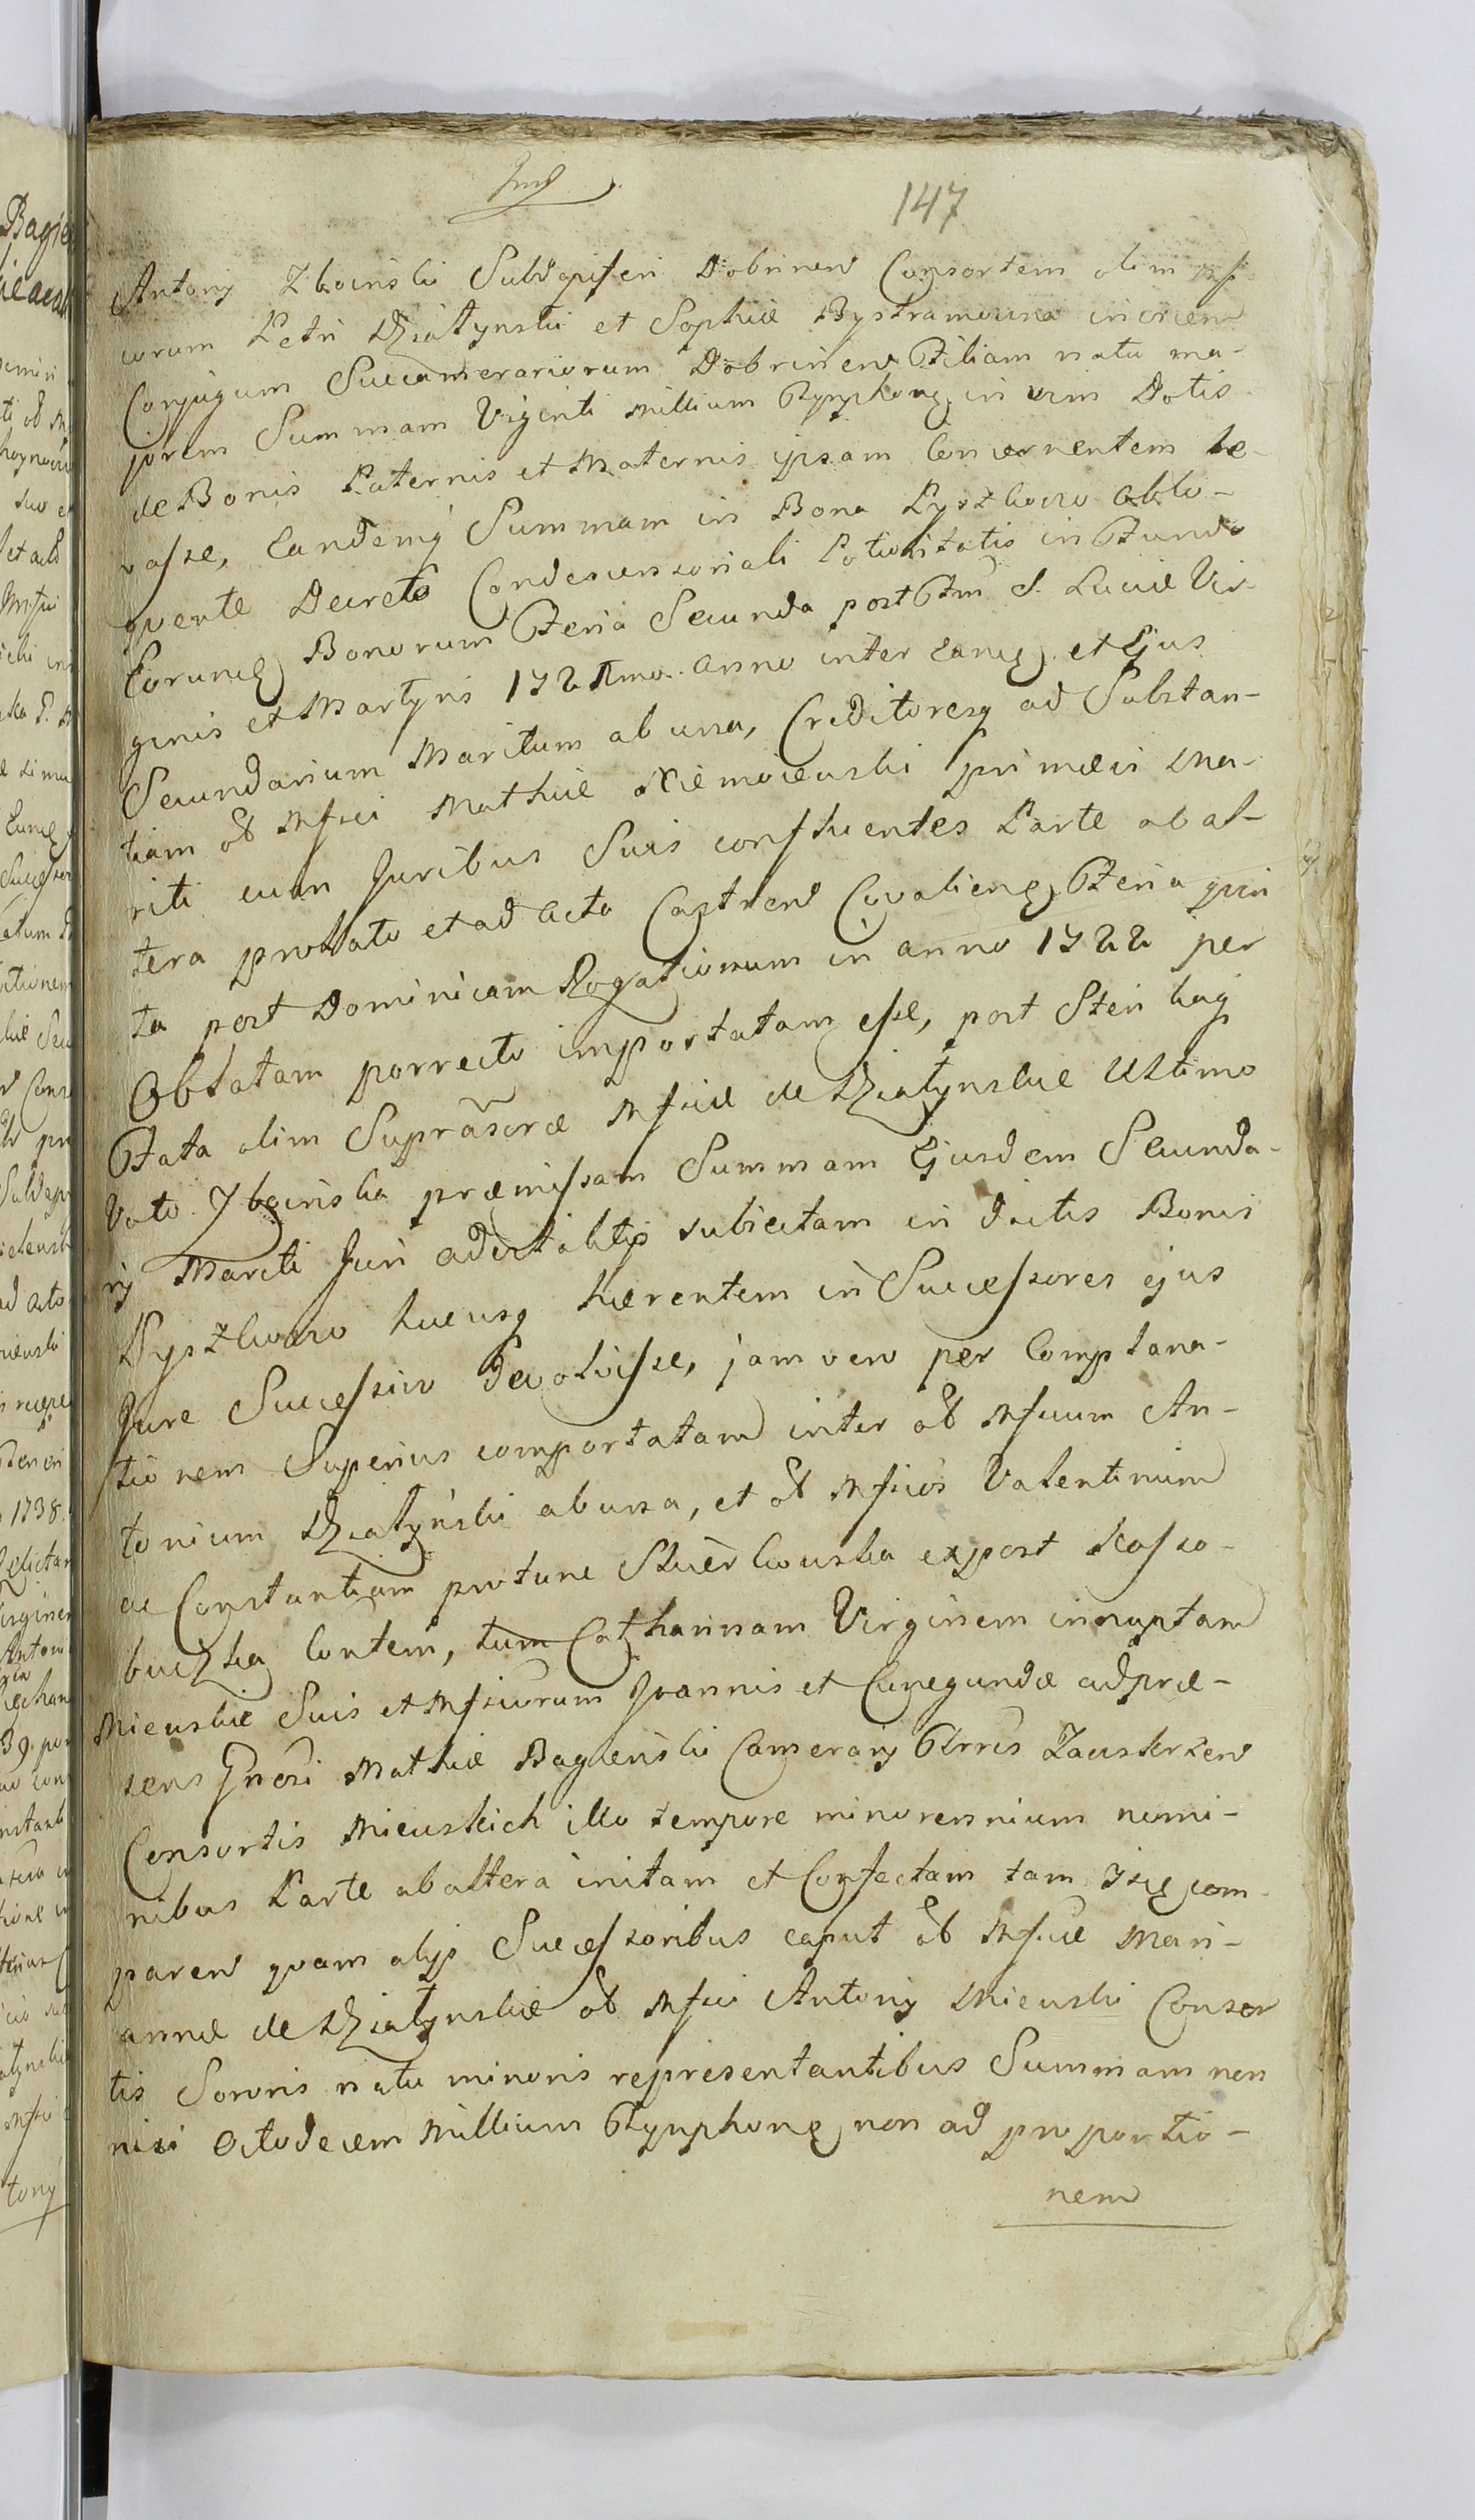 147
Antonij Zboinski Subdapiferi Dobrinen Consortem olim Mfi-
corum Petri Działynski et Sophiæ Bystramowna
Conjugum Succamerariorum Dobrinen Filiam natu ma-
jorem Summam Viginti Millium Tynphonq in vim Dotis
de Bonis Paternis et Maternis ipsam Concernentem le-
vasse, Eandemq Summam in Bona Łyszkowo
quente Decreto Condescensoriali Potioritatis in Fundo
Eorundq Bonorum Feria Secunda post Ftm S. Luciæ Vir-
ginis et Martyris 1721mo. Anno inter Eandq et Ejus
Secundarium Maritum ab una, Creditoresq ad Substan-
tiam olim Mfici Mathiæ Niemoiewski primævi Ma-
riti cum Juribus Suis confluentes Parte ab al-
tera prolato et ad Acta Castren Covaliensq Feria quin
ta post Dominicam Rogationum in anno 1722 per
Oblatam porrecto importatam esse, post Steri
Fata olim Suprascræ Mficæ de Działynskie Ultimo
Voto Zboinska præmissam Summam Ejusdem Secunda-
rij Mariti Juri advitalitis subiectam in dictis Bonis
Łyszkowo hucusq hærentem in Successores ejus
Jure Successivo devolvisse, jam vero per Complana-
tionem Superius comportatam inter olim Mficum An-
tonium Działynski ab una, et olim Mficos Valentinum
ac Constantiam pro tunc Skierkowska expost Kosso-
budzka Contem, tum Catharinam Virginem innuptam
Miewskie Suis et Mficorum Joannis et Cunegundæ ad præ-
sens Gnosi Mathiæ Bagienski Camerarij Trris Zawskrzen
Consortis Miewskich illo tempore minorennium nomi-
nibus Parte ab altera initam et Confectam tam Iisq com-
paren quam alijs Successoribus caput olim Mficæ Mari-
annæ de Działynskie olim Mfici Antonij Miewski Consor
tis Sororis natu minoris representantibus Summam non
nisi Octodecem Millium Tynphonq non ad proportio-
nem